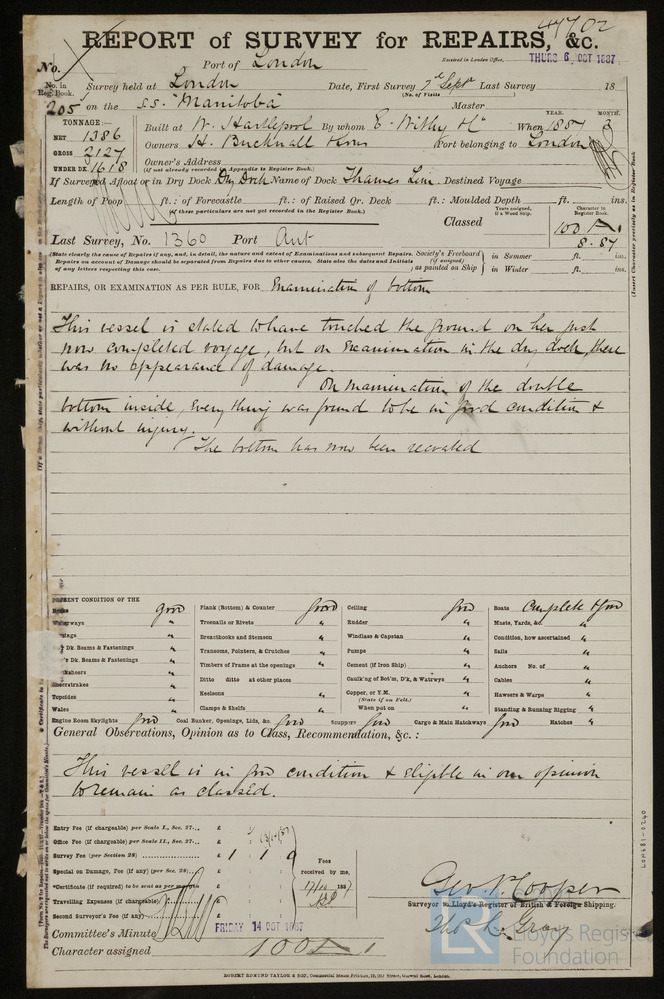 47702
REPORT of SURVEY for REPAIRS, &c.
No.
Port of London
Received in London Office, THURS 6 OCT 1887
No. in Reg. Book. Survey held at London Date, First Survey 7th Sept Last Survey 18
(No. of Visits )
205 on the S.S. "Manitoba" Master
TONNAGE:—
NET 1386
GROSS 2127
UNDER DK 1618
Built at W. Hartlepool By whom E. Withy & Co When 1887 3
YEAR. MONTH.
Owners H. Bucknall & Sons Port belonging to London
Owner's Address
(if not already recorded in Appendix to Register Book.)
If Surveyed Afloat or in Dry Dock Dry Dock Name of Dock Thames Iron Destined Voyage
Length of Poop ft.: of Forecastle ft.: of Raised Qr. Deck ft.: Moulded Depth ft. ins.
(if these particulars are not yet recorded in the Register Book.)
Years assigned, if a Wood Ship.
Character in Register Book.
Classed 100 A 1
8.87
Last Survey, No. 1360 Port Ant
(State clearly the cause of Repairs if any, and, in detail, the nature and extent of Examinations and subsequent Repairs.
Repairs on account of Damage should be separated from Repairs due to other causes. State also the dates and Initials
of any letters respecting this case.
Society's Freeboard (if assigned) as painted on Ship
in Summer ft. ins.
in Winter ft. ins.
(Insert Character precisely as in Register Book
REPAIRS, OR EXAMINATION AS PER RULE, FOR Examination of bottom
This vessel is stated to have touched the ground on her just
now completed voyage, but on examination in the dry dock, there
was no appearance of damage.
On examination of the double
bottom inside, everything was found to be in good condition &
without injury.
The bottom has now been recoated
PRESENT CONDITION OF THE
Decks good
Waterways "
"
Dk. Beams & Fastenings "
Dk. Beams & Fastenings "
"
Sheerstrakes "
Topsides "
Wales "
Plank (Bottom) & Counter good
Treenails or Rivets "
Breasthooks and Stemson "
Transoms, Pointers, & Crutches "
Timbers of Frame at the openings "
Ditto ditto at other places
Keelsons "
Clamps & Shelfs "
Ceiling good
Rudder "
Windlass & Capstan "
Pumps "
Cement (if Iron Ship) "
Caulk'ng of Bot'm, D'k, & Watrwys "
Copper, or Y.M. "
(State if on Felt.)
When put on "
Boats Complete & good
Masts, Yards, &c. "
Condition, how ascertained "
Sails "
Anchors No. of "
Cables "
Hawsers & Warps "
Standing & Running Rigging "
Engine Room Skylights good Coal Bunker, Openings, Lids, &c. good Scuppers good Cargo & Main Hatchways good Hatches "
General Observations, Opinion as to Class, Recommendation, &c. :
This vessel is in good condition & eligible in our opinion
to remain as classed.
Entry Fee (if chargeable) per Scale I., Sec. 27... £
Office Fee (if chargeable) per Scale II., Sec. 27... £
Survey Fee (per Section 28) £ 1 1 0
Special or Damage, Fee (if any) (per Sec. 28) £
*Certificate (if required) to be sent as per margin £
Travelling Expenses (if chargeable) £
Second Surveyor's Fee (if any) £
Fees received by me,
1887
Geo. P. Cooper
Surveyor to Lloyd's Register of British & Foreign Shipping.
Thos. L. Gray
Committee's Minute FRIDAY 14 OCT 1887
Character assigned 100 A 1
ROBERT EDMUND TAYLOR & SON, Commercial Steam Printers, 19, Old Street, Goswell Road, London.
LON681-0240
LR
Lloyd's Register
Foundation